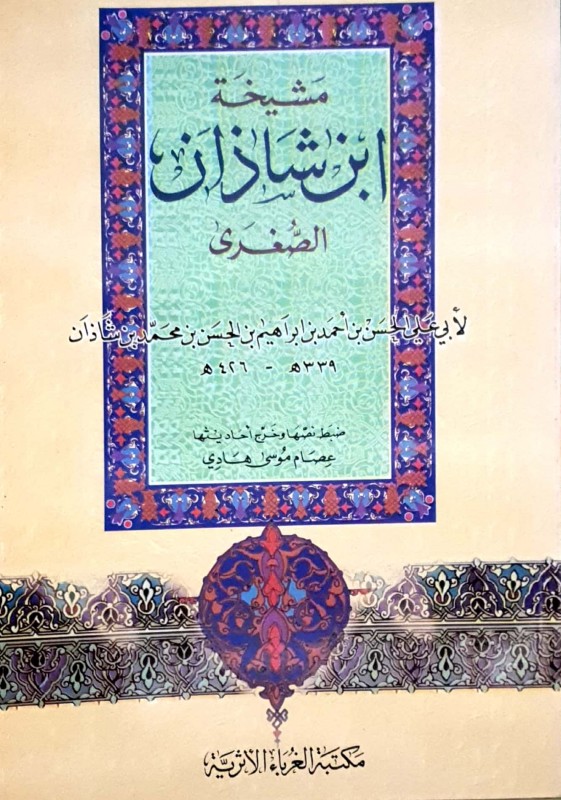 مَشيخَة
ابن شَاذَان
الصُّغرَى
لأبي عَلي الحَسَن بن أحمَد بن ابرَاهيم بن الحسَن بن محمَّد بن شَاذَان
٣٣٩هـ - ٤٢٦هـ
ضبَط نصّها وخرّج أحاديثها
عصَام مُوسَى هَادِي
مكتبَة الغُربَاء الأثريَّة